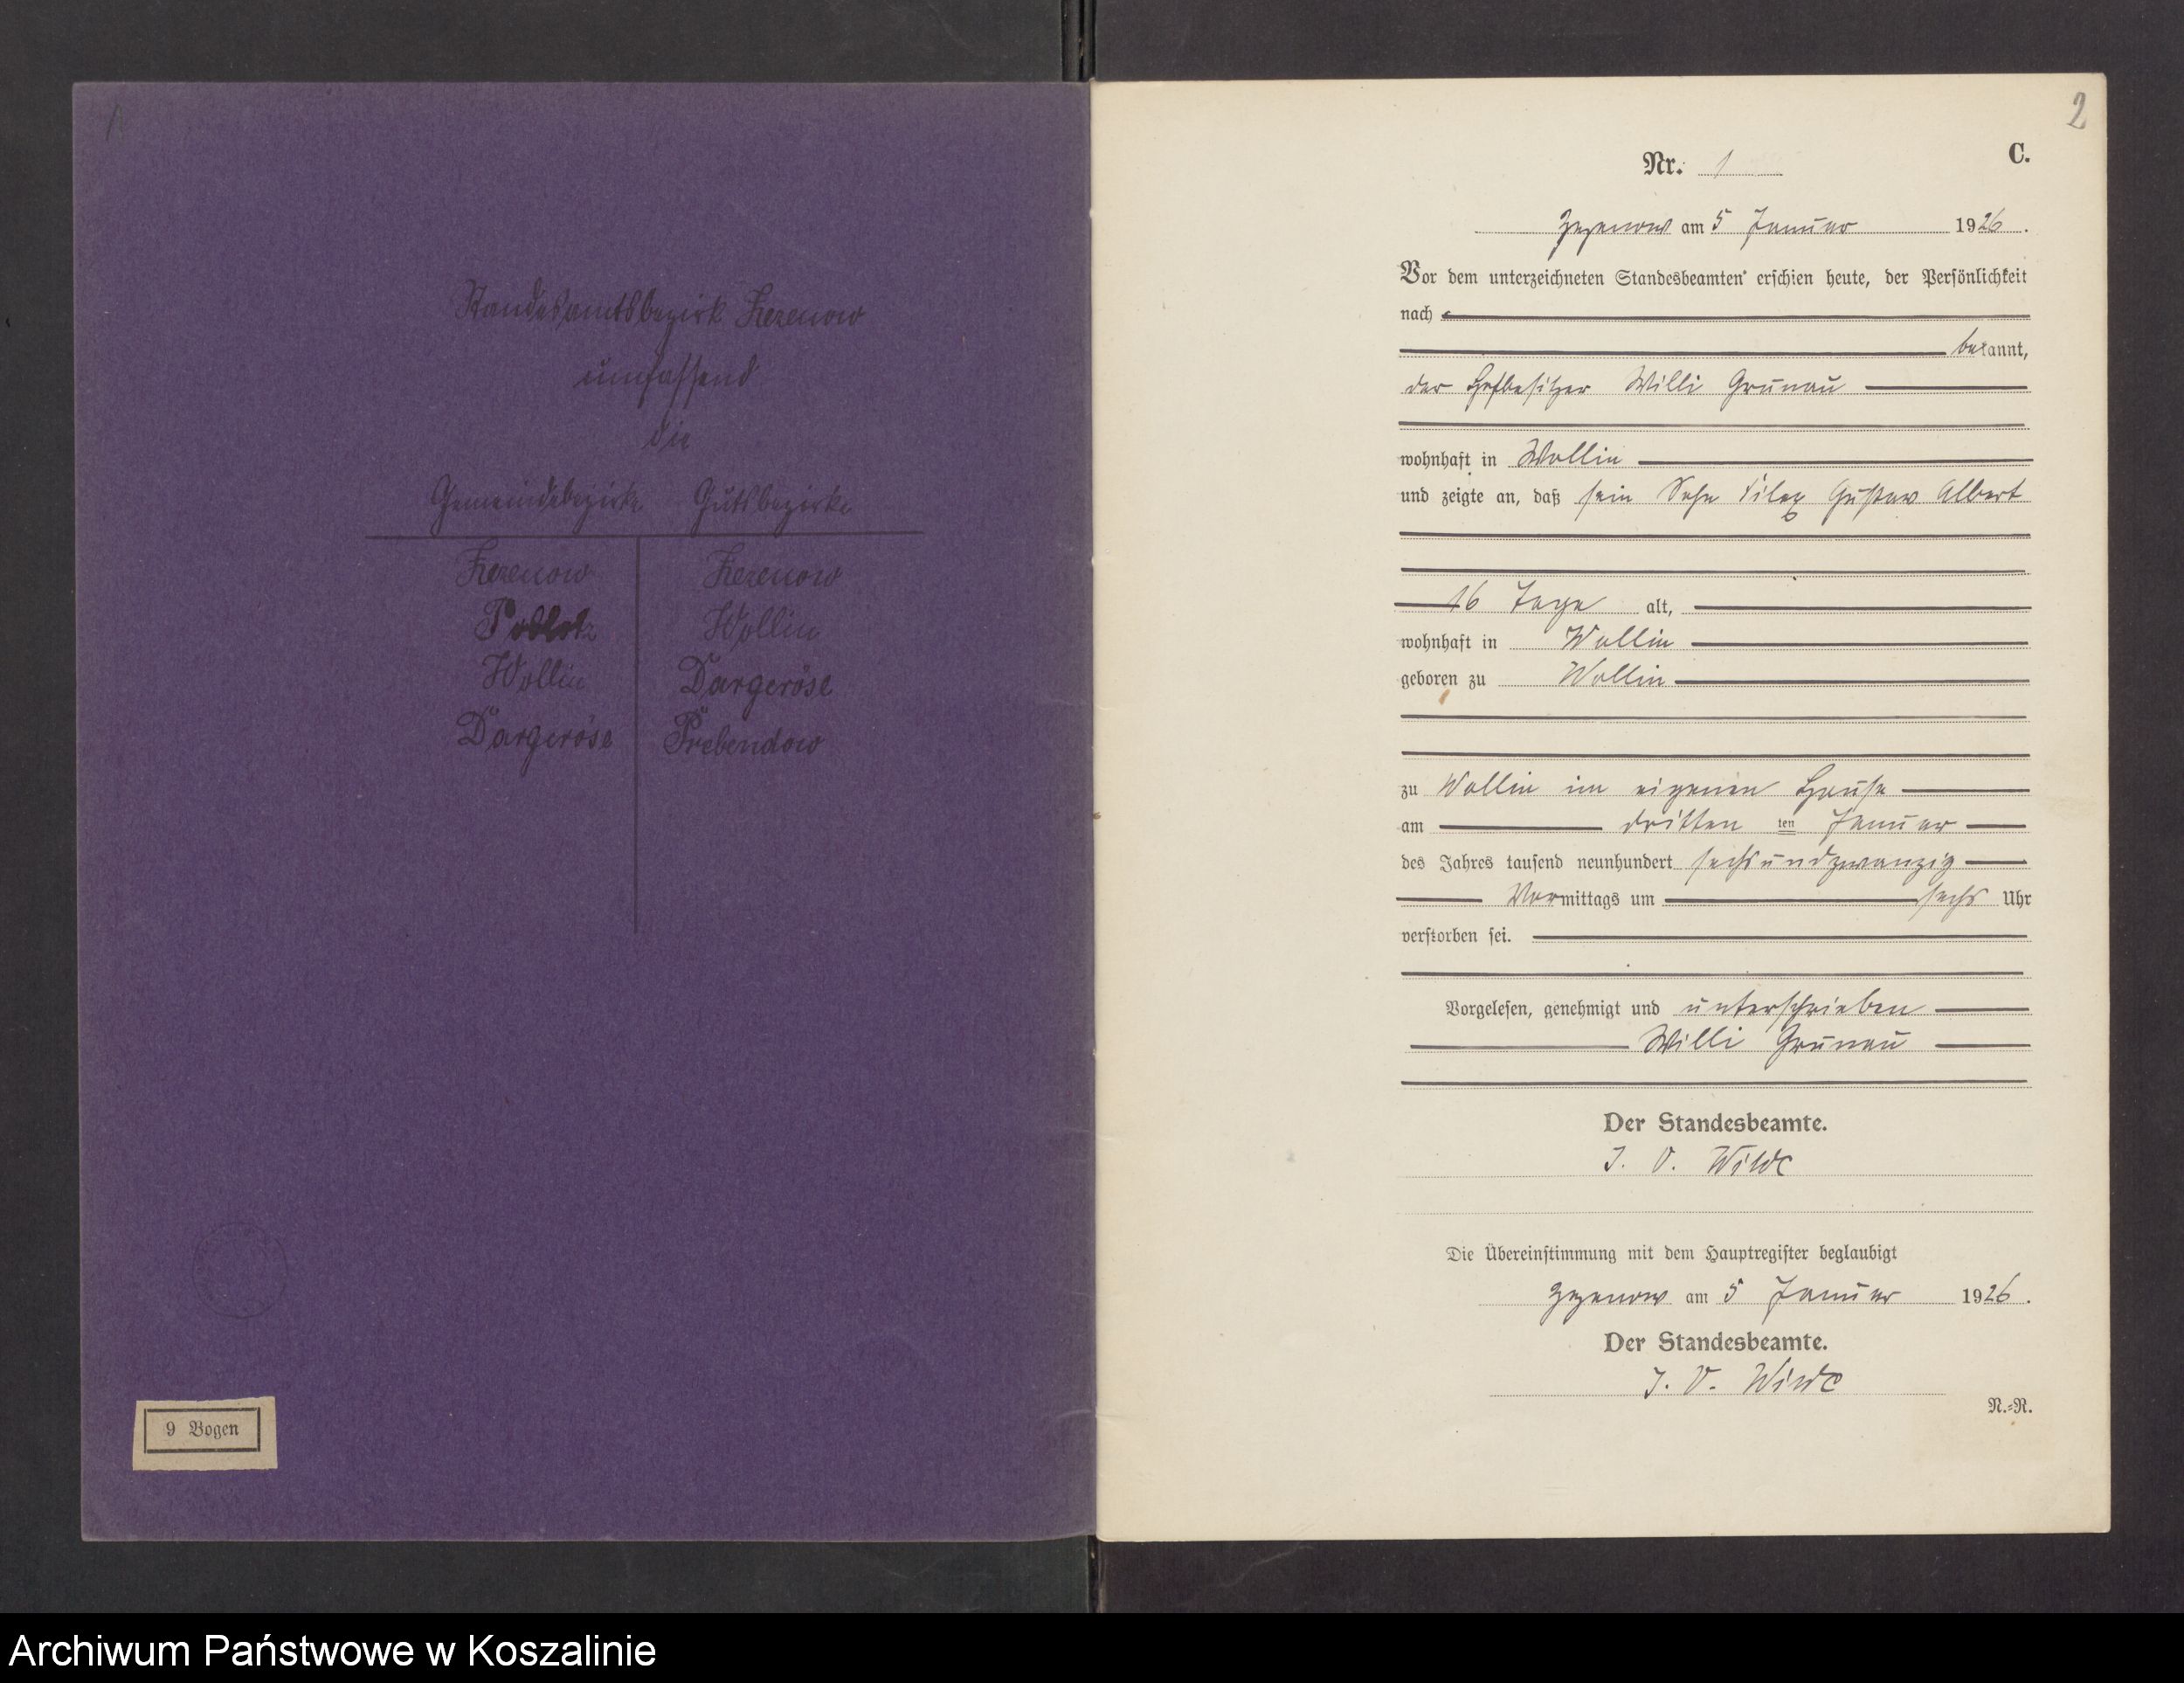 Standesamtsbezirk Zezenow
umfassend
die
Gemeindebezirke Gutsbezirke
Zezenow Zezenow
Wollin
Wollin Dargeröse
Dargeröse Prebendow
9 Bogen
2
C.
Nr. 1
Zezenow am 5 Januar 1926.
Vor dem unterzeichneten Standesbeamten erschien heute, der Persönlichkeit
nach
bekannt,
der Hofbesitzer Willi Grunau
wohnhaft in Wollin
und zeigte an, daß sein Sohn Gustav Albert
16 Tage alt,
wohnhaft in Wollin
geboren zu Wollin
zu Wollin im eigenen Hause
am dritten ten Januar
des Jahres tausend neunhundert sechsundzwanzig
Vormittags um sechs Uhr
verstorben sei.
Vorgelesen, genehmigt und unterschrieben
Willi Grunau
Der Standesbeamte.
J. V. Wilde
Die Übereinstimmung mit dem Hauptregister beglaubigt
Zezenow am 5 Januar 1926.
Der Standesbeamte.
J. V. Wilde
N.=R.
Archiwum Państwowe w Koszalinie